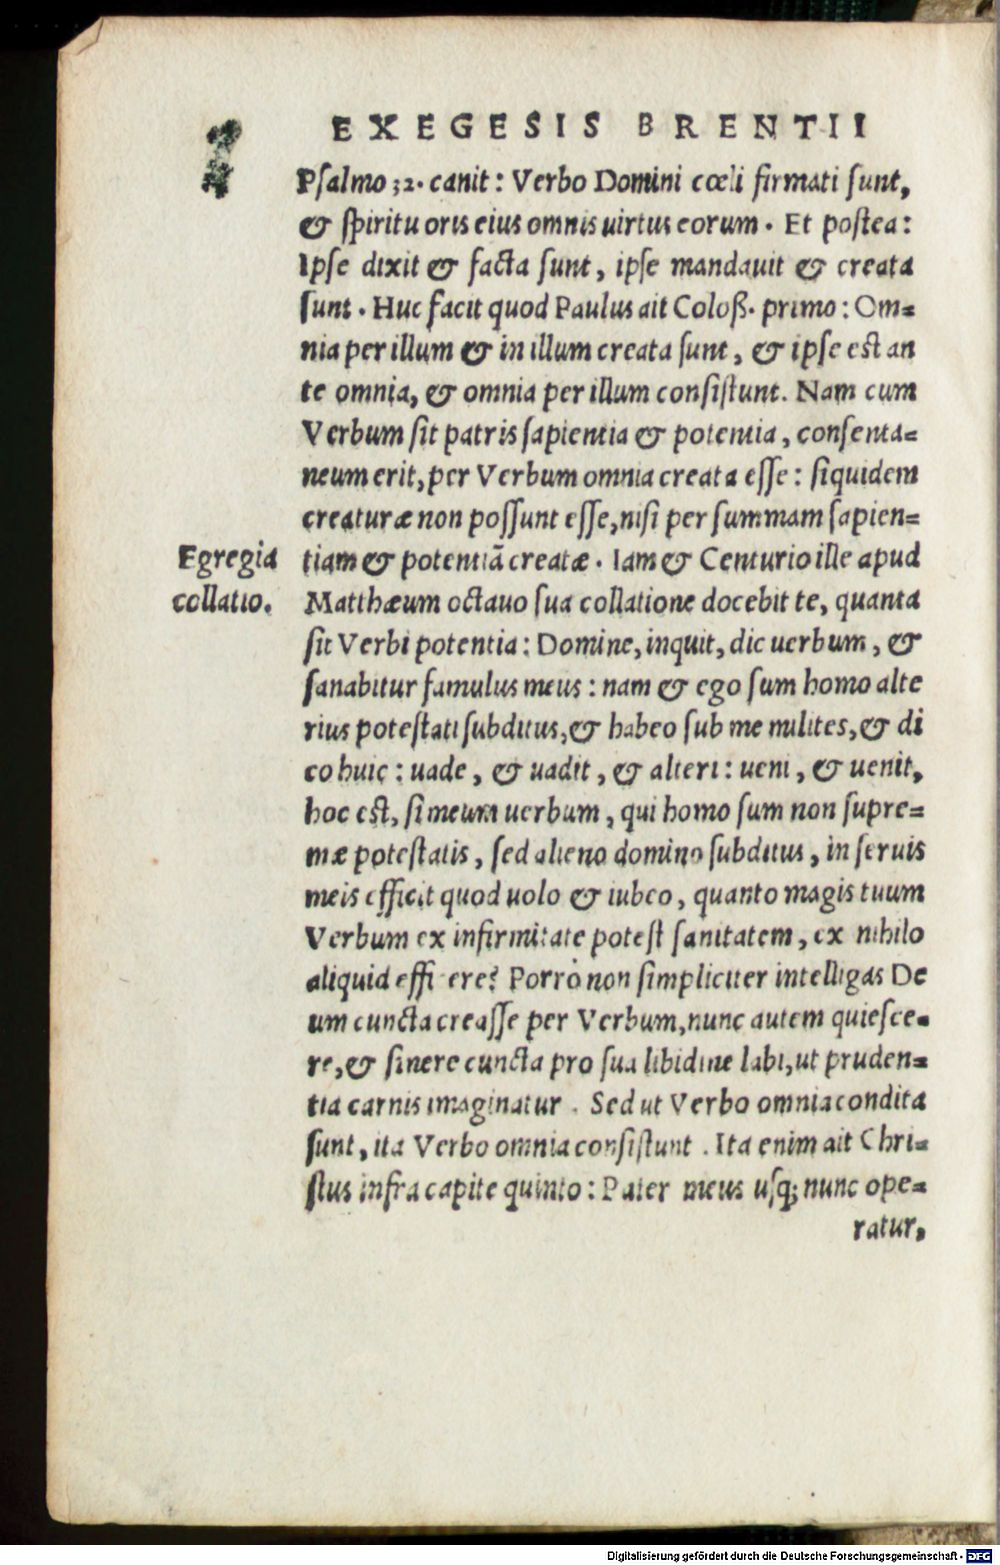 EXEGESIS BRENTII
Psalmo 32. canit: Verbo Domini cœli firmati sunt,
& spiritu oris eius omnis uirtus eorum. Et postea:
Ipse dixit & facta sunt, ipse mandauit & creata
sunt. Huc facit quod Paulus ait Coloß. primo: Om=
nia per illum & in illum creata sunt, & ipse est an
te omnia, & omnia per illum consistunt. Nam cum
Verbum sit patris sapientia & potentia, consenta=
neum erit, per Verbum omnia creata esse: siquidem
creaturæ non possunt esse, nisi per summam sapien=
Egregia
collatio.
tiam & potentiã creatæ. Iam & Centurio ille apud
Matthæum octauo sua collatione docebit te, quanta
sit Verbi potentia: Domine, inquit, dic uerbum, &
sanabitur famulus meus: nam & ego sum homo alte
rius potestati subditus, & habeo sub me milites, & di
co huic: uade, & uadit, & alteri: ueni, & uenit,
hoc est, si meum uerbum, qui homo sum non supre=
mæ potestatis, sed alieno domino subditus, in seruis
meis efficit quod uolo & iubeo, quanto magis tuum
Verbum ex infirmitate potest sanitatem, ex nihilo
aliquid effi ere? Porrò non simpliciter intelligas De
um cuncta creasse per Verbum, nunc autem quiesce=
re, & sinere cuncta pro sua libidine labi, ut pruden=
tia carnis imaginatur. Sed ut Verbo omnia condita
sunt, ita Verbo omnia consistunt. Ita enim ait Chri=
stus infra capite quinto: Pater meus usq; nunc ope=
ratur,
Digitalisierung gefördert durch die Deutsche Forschungsgemeinschaft - DFG